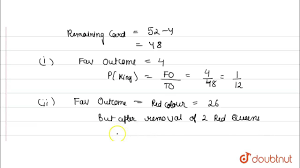 Remaining Card = 52-4
= 48
(i) Fav Outcome = 4
P(King) = FO/TO = 4/48 = 1/12
(ii) Fav Outcome - Red colour = 26
But after removal of 2 Red Queens
doubtnut